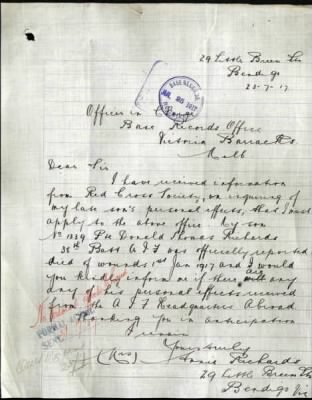 29 Little Breen St
Bendigo
23-7-17
BASE RECORDS
Officer in Charge
Base Records Office
Victoria Barracks
Melb
Dear Sir
I have received information
from Red Cross Society, on inquiring of
my late son's personal effects, that I must
apply to the above office. My son
No 1839 Pte Donald Thomas Richards
38th Batt A.I.F was officially reported
died of wounds 1st Jan 1917 and I would
you kindly inform if there are any
of his personal effects received
from the A I F Headquarters Abroad
Thanking you in anticipation
I remain
Yours truly
(Mrs) Annie Richards
29 Little Breen St
Bendigo Vic